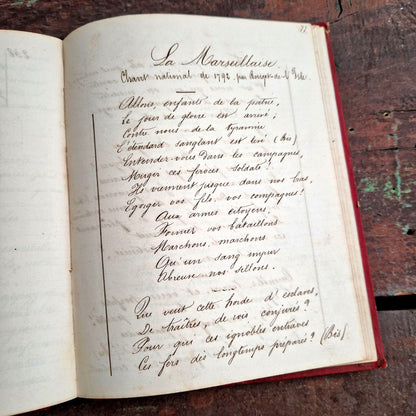 La Marseillaise
Chant national de 1792, par Rouget-de-l'Isle.
Allons, enfants de la patrie,
Le jour de gloire est arrivé;
Contre nous de la tyrannie
L'étendard sanglant est levé (Bis)
Entendez vous dans les campagnes,
Mugir ces féroces soldats!
Ils viennent jusque dans nos bras,
Egorger vos fils, vos compagnes!
Aux armes citoyens,
Formez vos bataillons
Marchons, marchons
Qu'un sang impur
Abreuve nos sillons.
Que veut cette horde d'esclaves,
De traîtres, de rois conjurés?
Pour qui ces ignobles entraves
Ces fers dès longtemps préparés? (Bis)